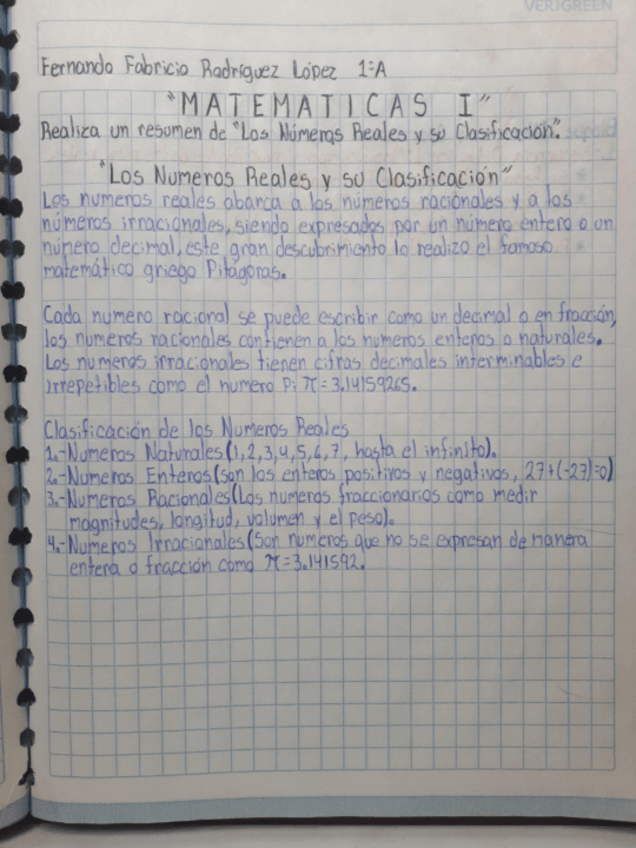 VERIGREEN
Fernando Fabricio Rodríguez López 1°A
"MATEMATICAS I"
Realiza un resumen de "Los Números Reales y su Clasificación".
"Los Numeros Reales y su Clasificación"
Los numeros reales abarca a los números racionales y a los
números irracionales, siendo expresados por un número entero o un
número decimal, este gran descubrimiento lo realizo el famoso
matemático griego Pitágoras.
Cada numero racional se puede escribir como un decimal o en fracción,
los numeros racionales contienen a los numeros enteros o naturales.
Los numeros irracionales tienen cifras decimales interminables e
irrepetibles como el numero Pi π=3.14159265.
Clasificación de los Numeros Reales
1.-Numeros Naturales(1,2,3,4,5,6,7, hasta el infinito).
2.-Numeros Enteros(son los enteros positivos y negativos, 27+(-27)=0)
3.-Numeros Racionales(Los numeros fraccionarios como medir
magnitudes, longitud, volumen y el peso).
4.-Numeros Irracionales(Son numeros que no se expresan de manera
entera o fracción como π=3.141592.